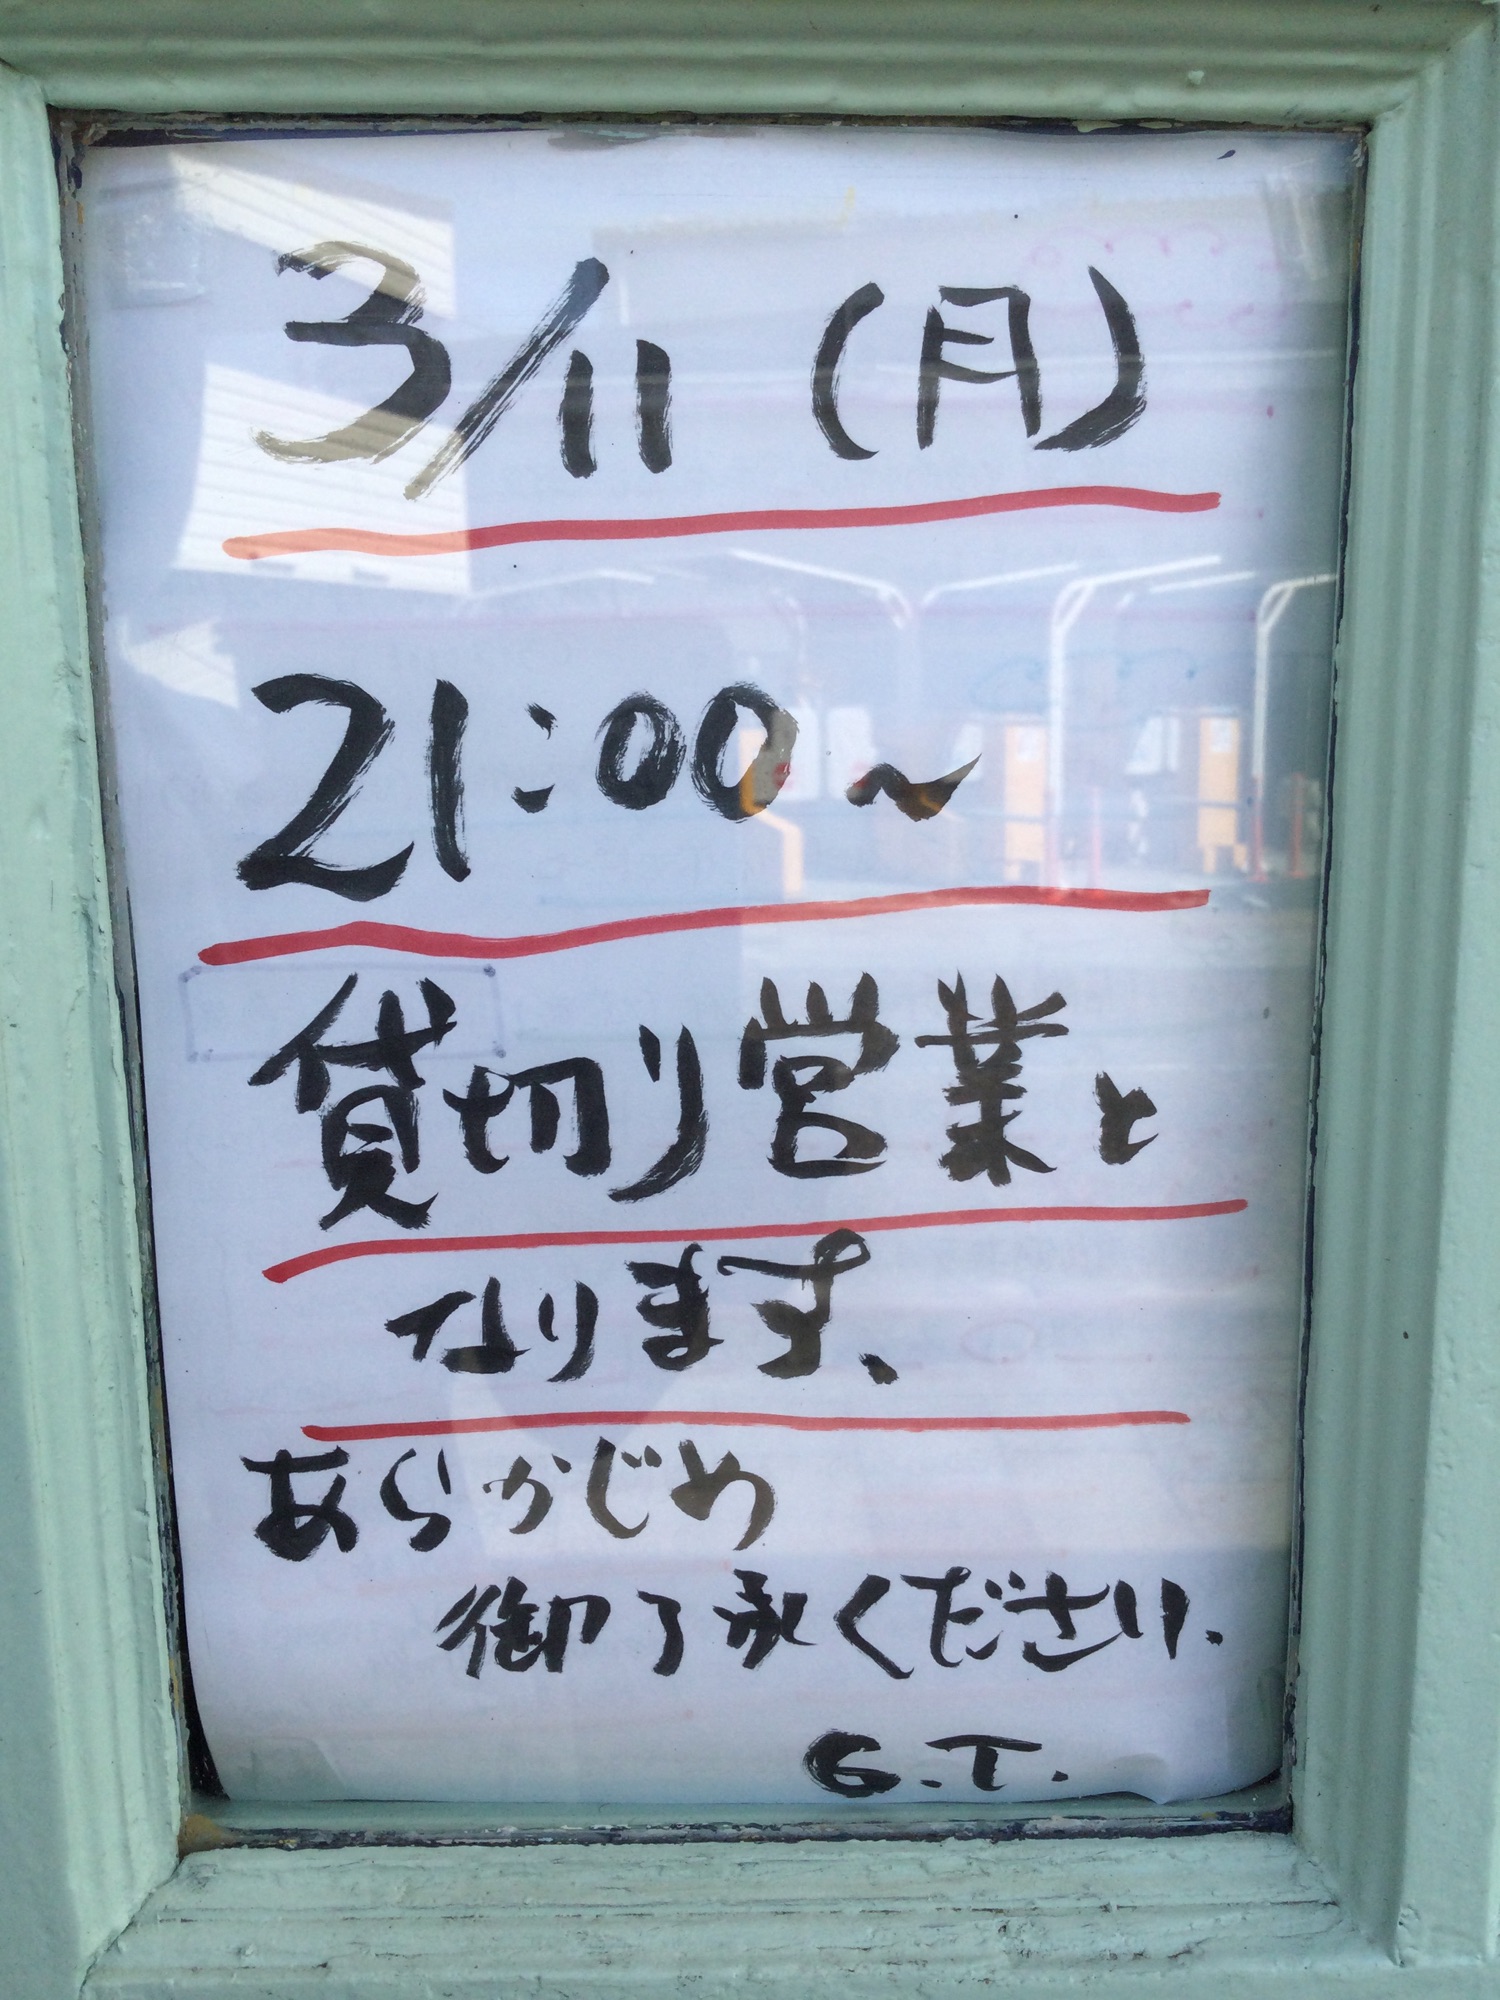 3/11 (月)
21:00～
貸切り営業と
なります、
あらかじめ
御了承ください.
G.T.